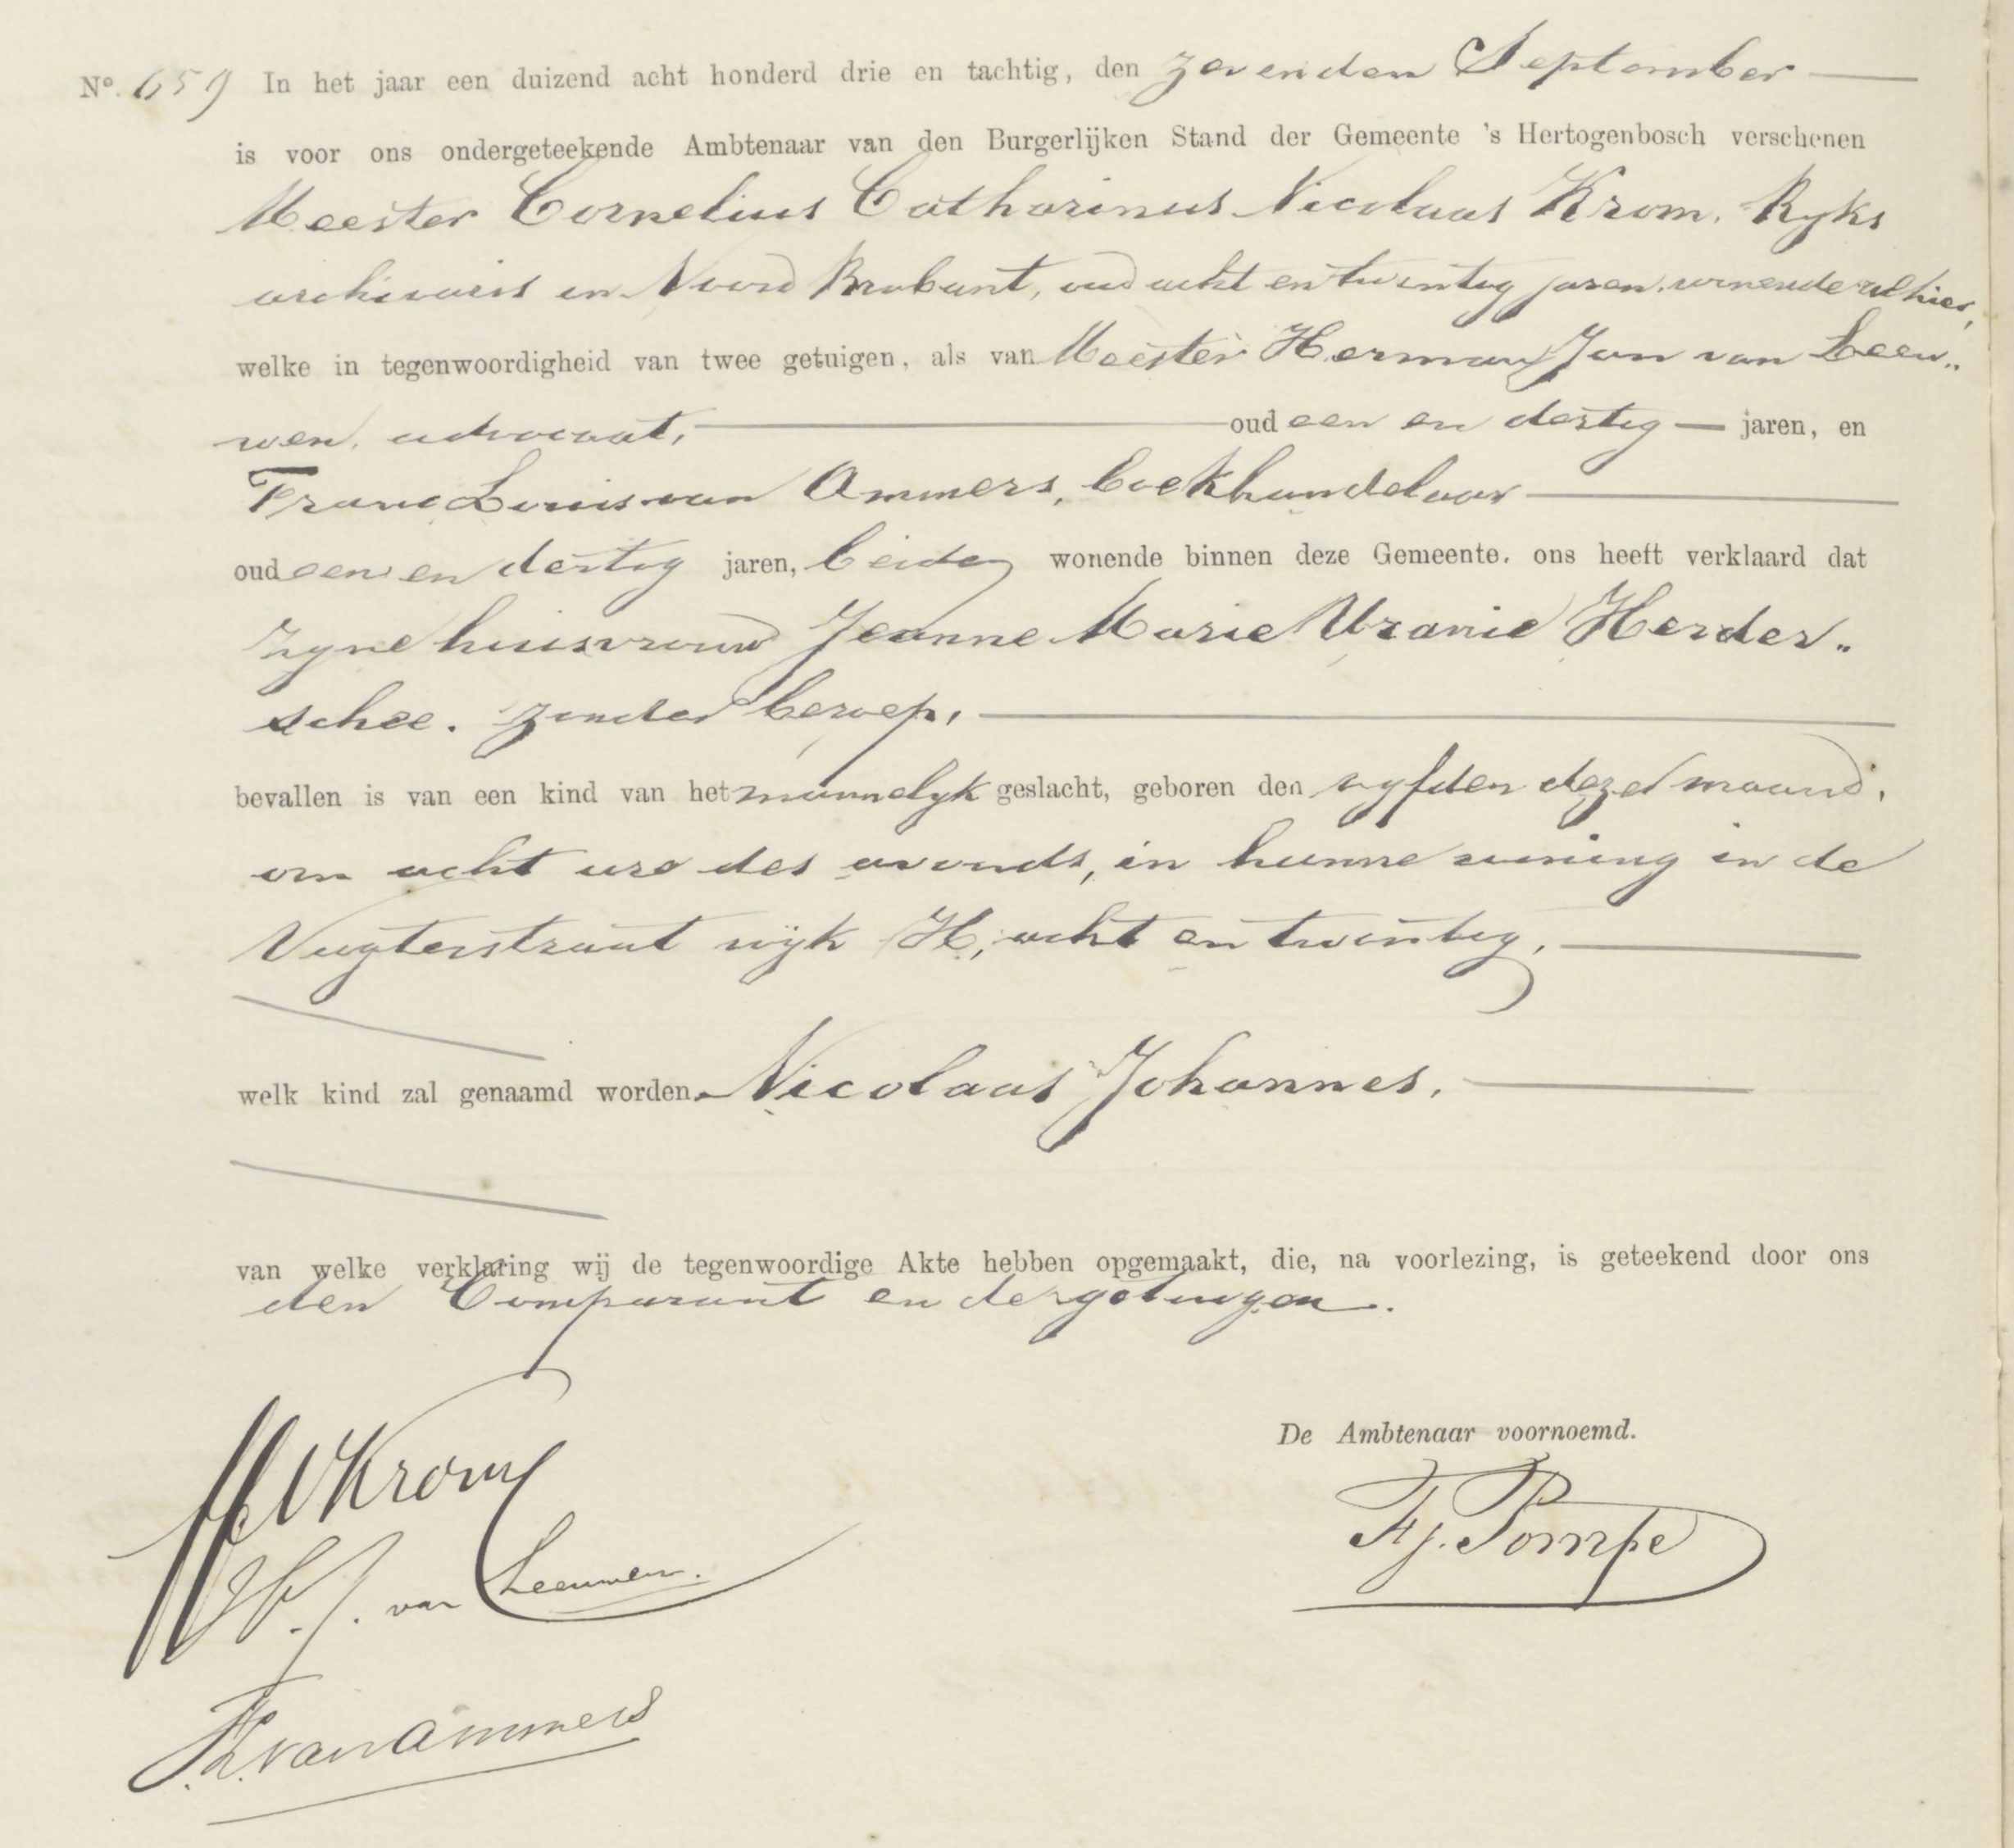 No. 659 In het jaar een duizend acht honderd drie en tachtig, den zevenden September
is voor ons ondergeteekende Ambtenaar van den Burgerlijken Stand der Gemeente 's Hertogenbosch verschenen
Meester Cornelius Catharinus Nicolaas Krom, Ryks
archivaris in Noord Brabant, oud acht en twintig jaren, wonende alhier,
welke in tegenwoordigheid van twee getuigen, als van Meester Herman Jan van Leeu„
wen, advocaat, oud een en dertig jaren, en
Frans Louis van Ammers, boekhandelaar
oud een en dertig jaren, beiden wonende binnen deze Gemeente, ons heeft verklaard dat
zyne huisvrouw Jeanne Marie Uranie Herder„
schee, zonder beroep,
bevallen is van een kind van het mannelyk geslacht, geboren den vyfden dezer maand,
om acht ure des avonds, in hunne woning in de
Vugterstraat wijk H, acht en twintig,
welk kind zal genaamd worden Nicolaas Johannes,
van welke verklaring wij de tegenwoordige Akte hebben opgemaakt, die, na voorlezing, is geteekend door ons
den Comparant en de getuigen.
De Ambtenaar voornoemd.
Krom
F.J. Pompe
H. J. van Leeuwen.
F.L. van Ammers